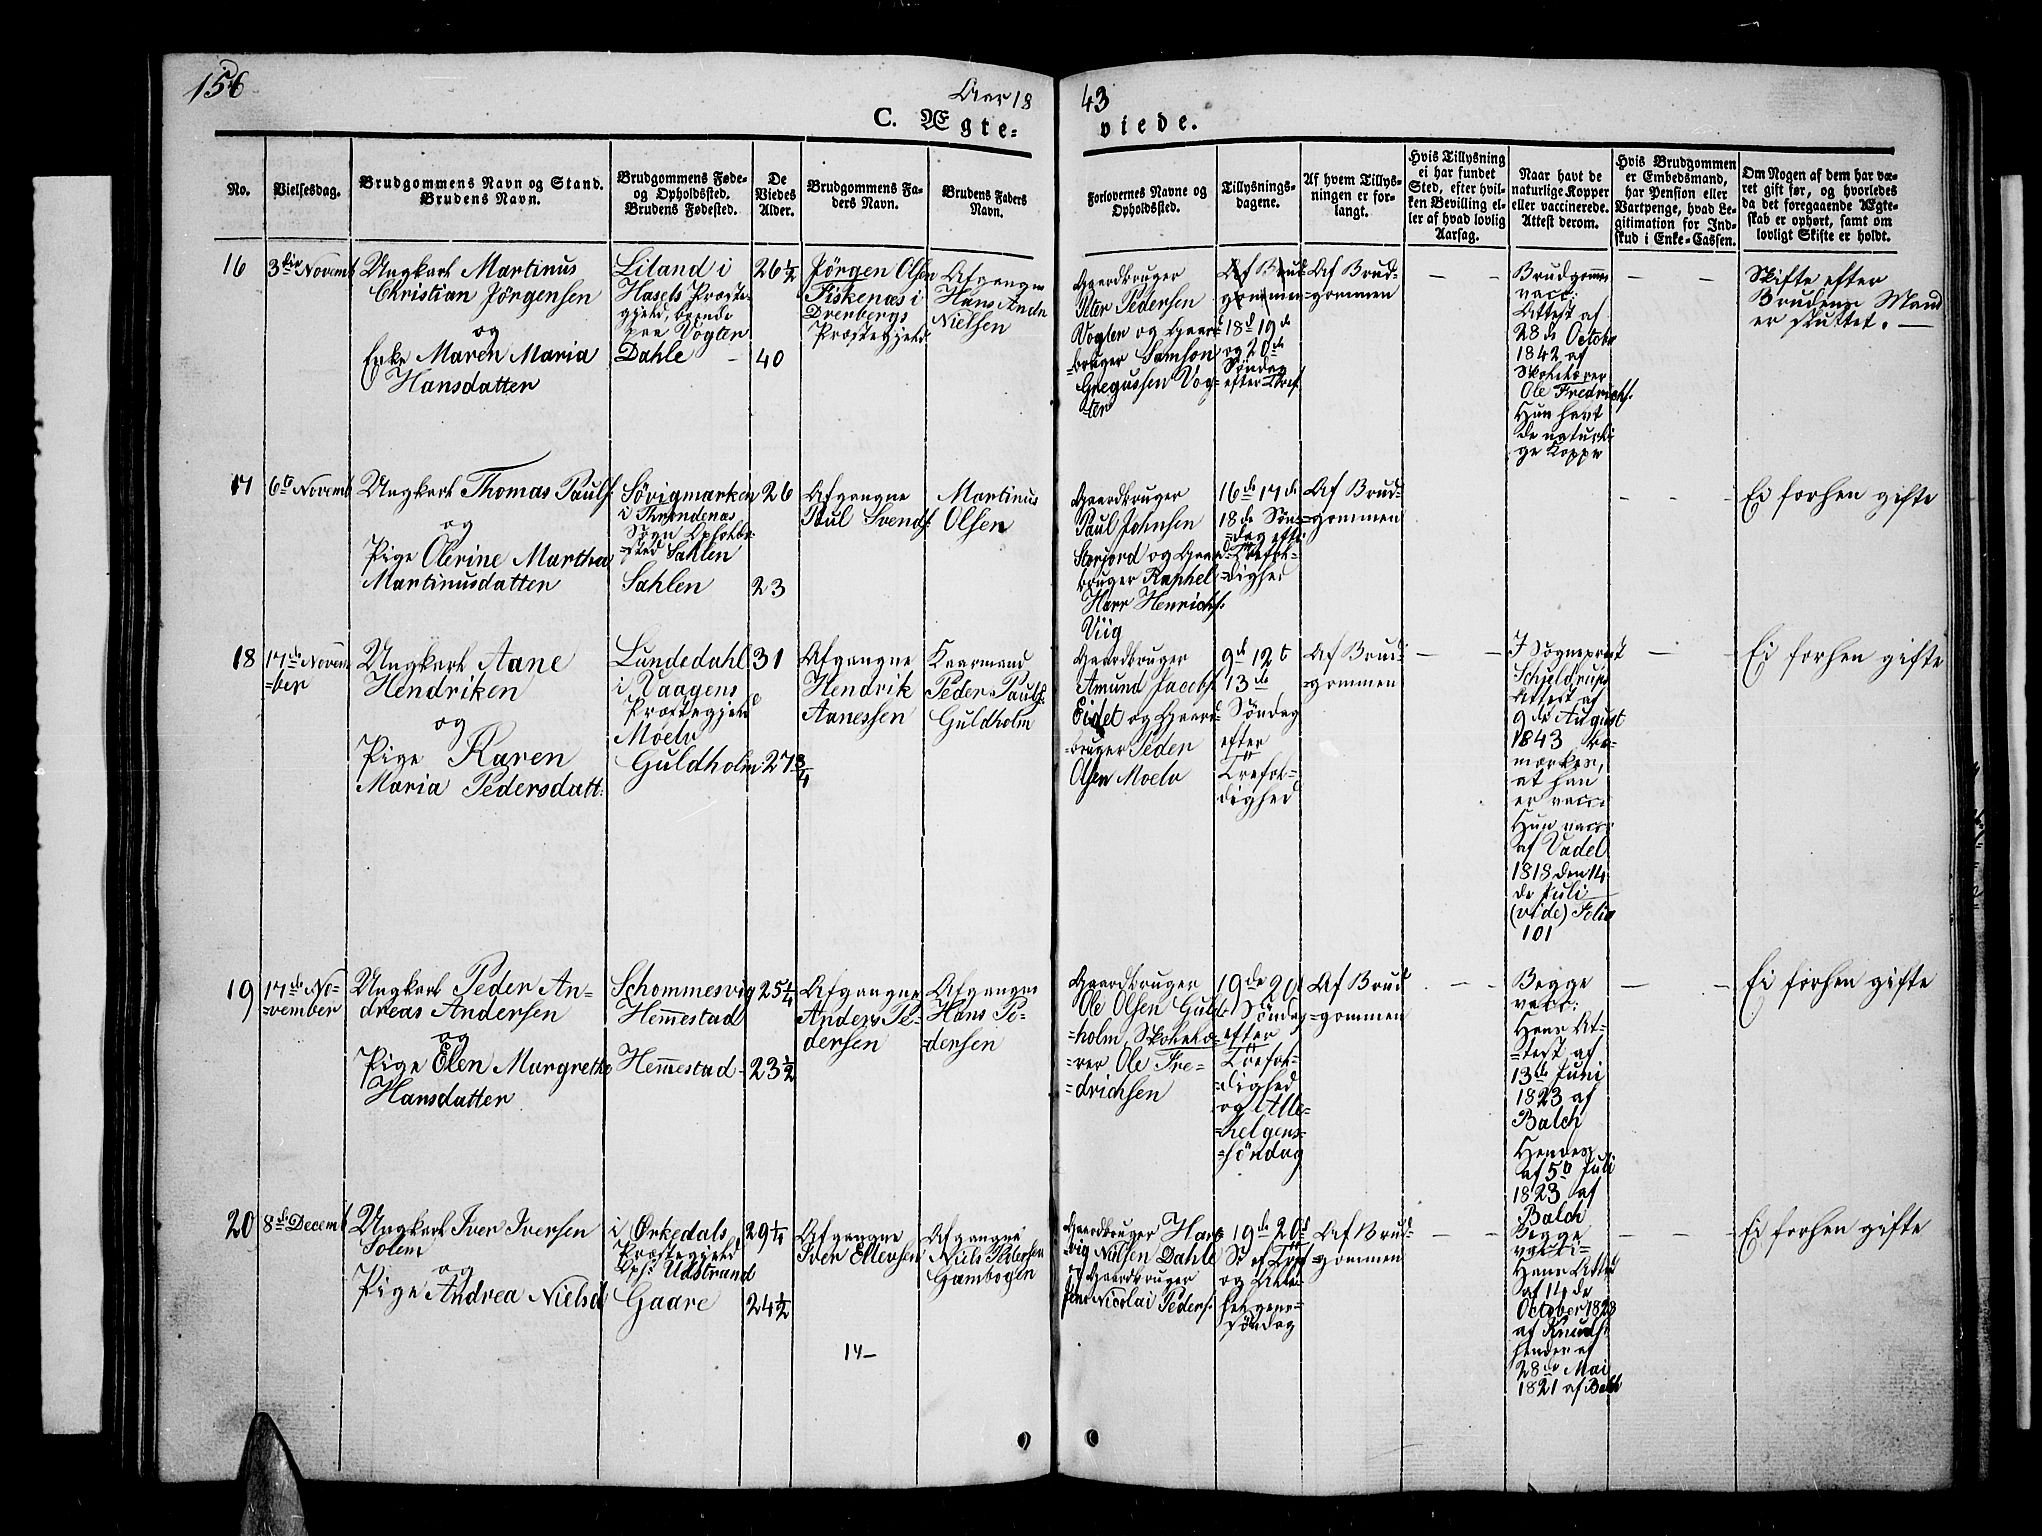 156
Aar 18
43
C. Ægte=
viede.
No.
Vielsesdag.
Brudgommens Navn og Stand.
Brudens Navn.
Brudgommens Føde=
og Opholdssted.
Brudens Fødested.
De
Viedes
Alder.
Brudgommens Fa-
ders Navn.
Brudens Faders
Navn.
Forlovernes Navne og
Opholdssted.
Tillysnings-
dagene.
Af hvem Tillys-
ningen er for-
langt.
Hvis Tillysning
ei har fundet
Sted, efter hvil-
ken Bevilling el-
ler af hvad lovlig
Aarsag.
Naar havt de
naturlige Kopper
eller vaccinerede.
Attest derom.
Hvis Brudgommen
er Embedsmand,
har Pension eller
Vartpenge, hvad Le-
gitimation for Ind-
skud i Enke-Cassen.
Om Nogen af dem har væ-
ret gift før, og hvorledes
da det foregaaende Ægte-
skab er ophørt, samt om
lovligt Skifte er holdt.
16
3die Novemb
Ungkarl Martinus
Christian Jörgensen
og
Enke Maren Maria
Hansdatter
Liland i
Hasels Præste-
gjeld, boende
paa Vogter
Dahle -
26 1/2
40
Jörgen Olsen
Fiskenæs i
Præstegjeld
Afgangne
Hans Andr
Nielsen
Gaardbruger
Peter Pedersen
Vogten og Gaard
=bruger Samson
Gregussen Vog=
ter
Af Brud
gommen
18d 19de
og 20de
Söndag
efter Tref.
Af Brud=
=gommen
Brudgomm
vacc:
Attest af
28de Octobr
1842 af
Skolelærer
Ole Fredrichs.
Hun havt
de naturli
ge Koppe
Skifte efter
Brudens Mand
er sluttet. —
17
6te Novemb
Ungkarl Thomas Pauls.
og
Pige Olerine Martha
Martinusdatter
Sövigmarken
i Throndenæs
Sogn Opholds-
=sted Sahlen
Sahlen
26
23
Afgangne
Paul Svends.
Martinus
Olsen
Gaardbruger
Paul Johnsen
Storjord og Gaard
bruger Raphel
Harr Henrichs.
Viig
16de 17de
18de Sön=
=dag efter
Trefol=
=dighed
Af Brud=
=gommen
Ei forhen gifte
18
17de Novem
=ber
Ungkarl Aane
Hendriken
og
Pige Karen
Maria Pedersdatt:
Lundedahl
i Vaagens
Præstegjeld
Moelv
Guldholm
31
27 3/4
Afgangne
Hendrik
Aanessen
Kaarmand
Peder Pauls.
Guldholm
Gaardbruger
Amund Jacobs.
Eidet og Gaard
=bruger Peder
Olsen Moelv
9de 12t
13de
Söndag
efter
Trefol=
dighed
Af Brud=
=gommen
I Sognepræst
Schjeldrups
Attest af
9de August
1843 be=
mærkes,
at han
er vacc:
Hun vacc:
af Vadel
1818 den 14
de Juli
(vide) Folio
101
Ei forhen gifte
19
17de No=
=vember
Ungkarl Peder An=
dreas Andersen
og
Pige Elen Margrethe
Hansdatter
Schommesvig
Hemmestad
Hemmestad -
25 1/4
23 1/2
Afgangne
Anders Pe=
dersen
Afgangne
Hans Pe=
=dersen
Gaardbruger
Ole Olsen Guld=
=holm, Skolelæ=
=rer Ole Fre=
=drichsen
19de 20d
Söndag
efter
Trefol=
=dighed
og Alle=
=helgens=
=söndag
Af Brud
=gommen
Begge
vacc:
Hans At=
=test af
13de Juni
1823 af
Balch
Hendes
af 5te Juli
1823 af
Balch
Ei forhen gifte
20
8de Decemb
Ungkarl Iver Iversen
Solem
og
Pige Andrea Nielsd
i Ørkedals
Præstegjeld
Ops: Udstrand
Gaare
29 1/4
24 1/2
Afgangne
Iver Ellevsen
Afgangne
Niels Pedersen
Gambogen
14—
Gaardbruger Hart
vig Nielsen Dahle
og Gaardbruger
Jens Nicolai Peders.
19de 20d
S. ef Tref
og Alle=
helgens=
söndag
Af Brud=
=gommen
Begge
vacci=
Hans Attest
af 14de
October 1828
af
hendes af
28de Mai
1821 af Balch
Ei forhen gifte